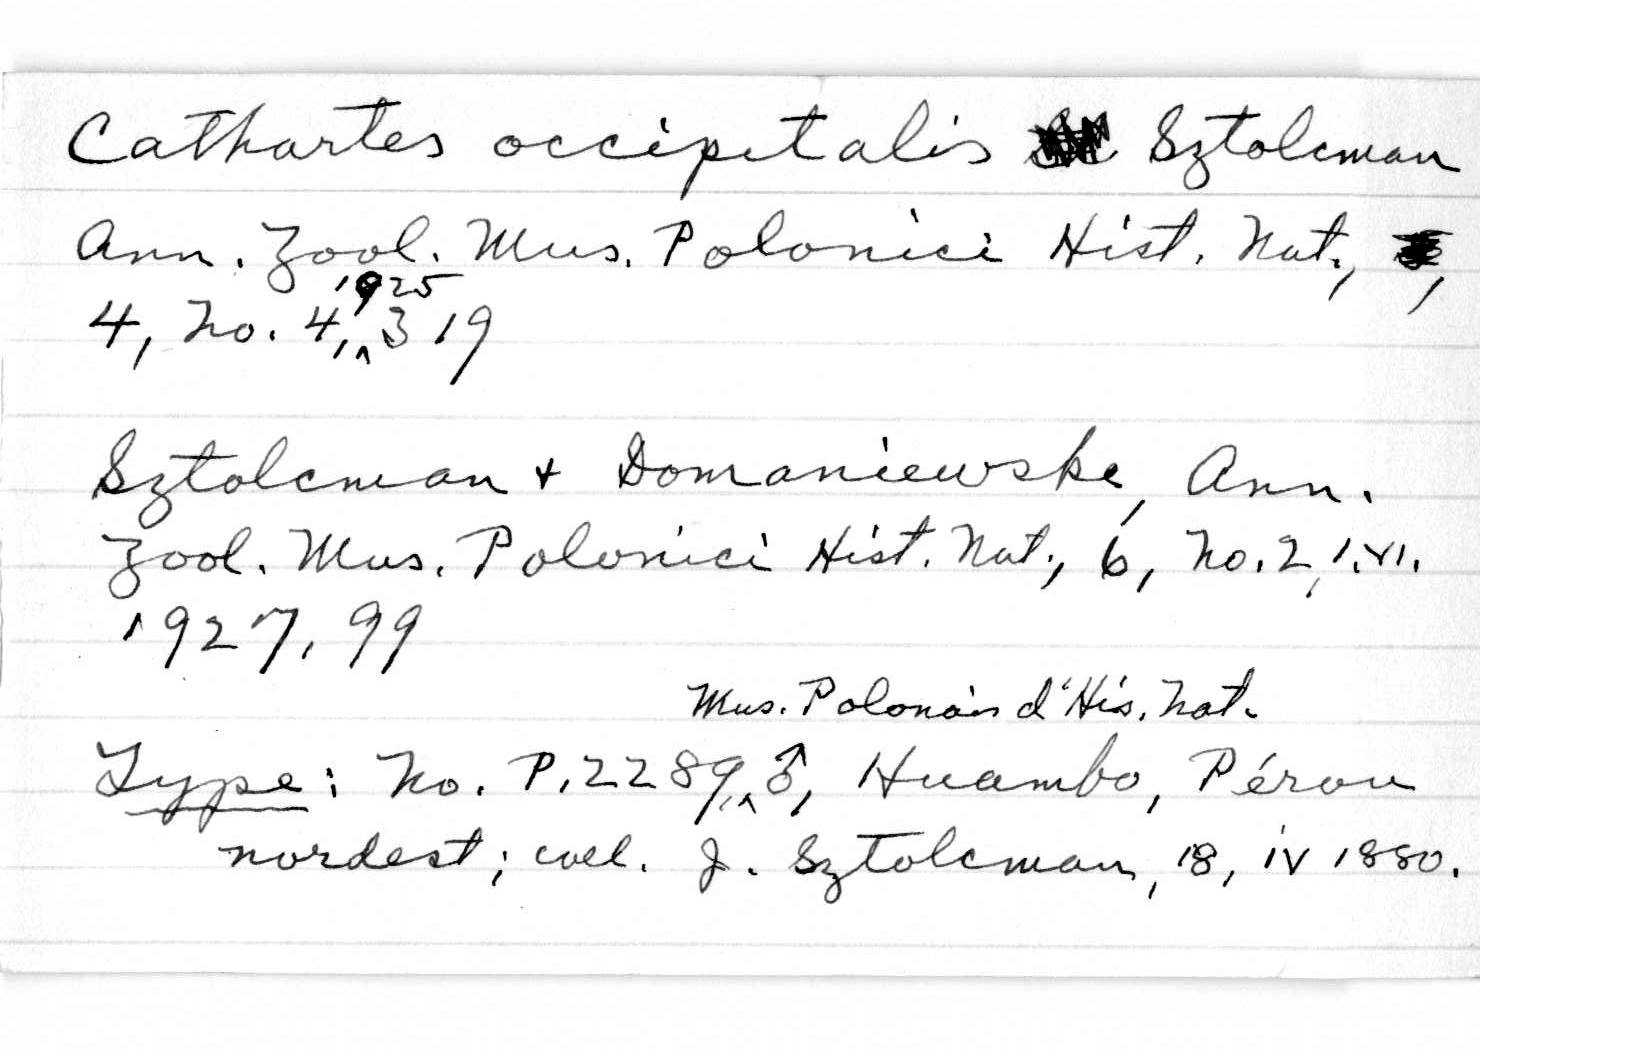 Cathartes occipitalis Sztolcman
Ann. Zool. Mus. Polonici Hist. Nat.,
4, No. 4, 1925, 319
Sztolcman + Domaniewski, Ann.
Zool. Mus. Polonici Hist. Nat., 6, No. 2, 1.VI.
1927, 99
Mus. Polonais d'His. Nat.
Type: No. P.2289, ♂, Huambo, Pérou
nordest; coll. J. Sztolcman, 18, iv 1880.